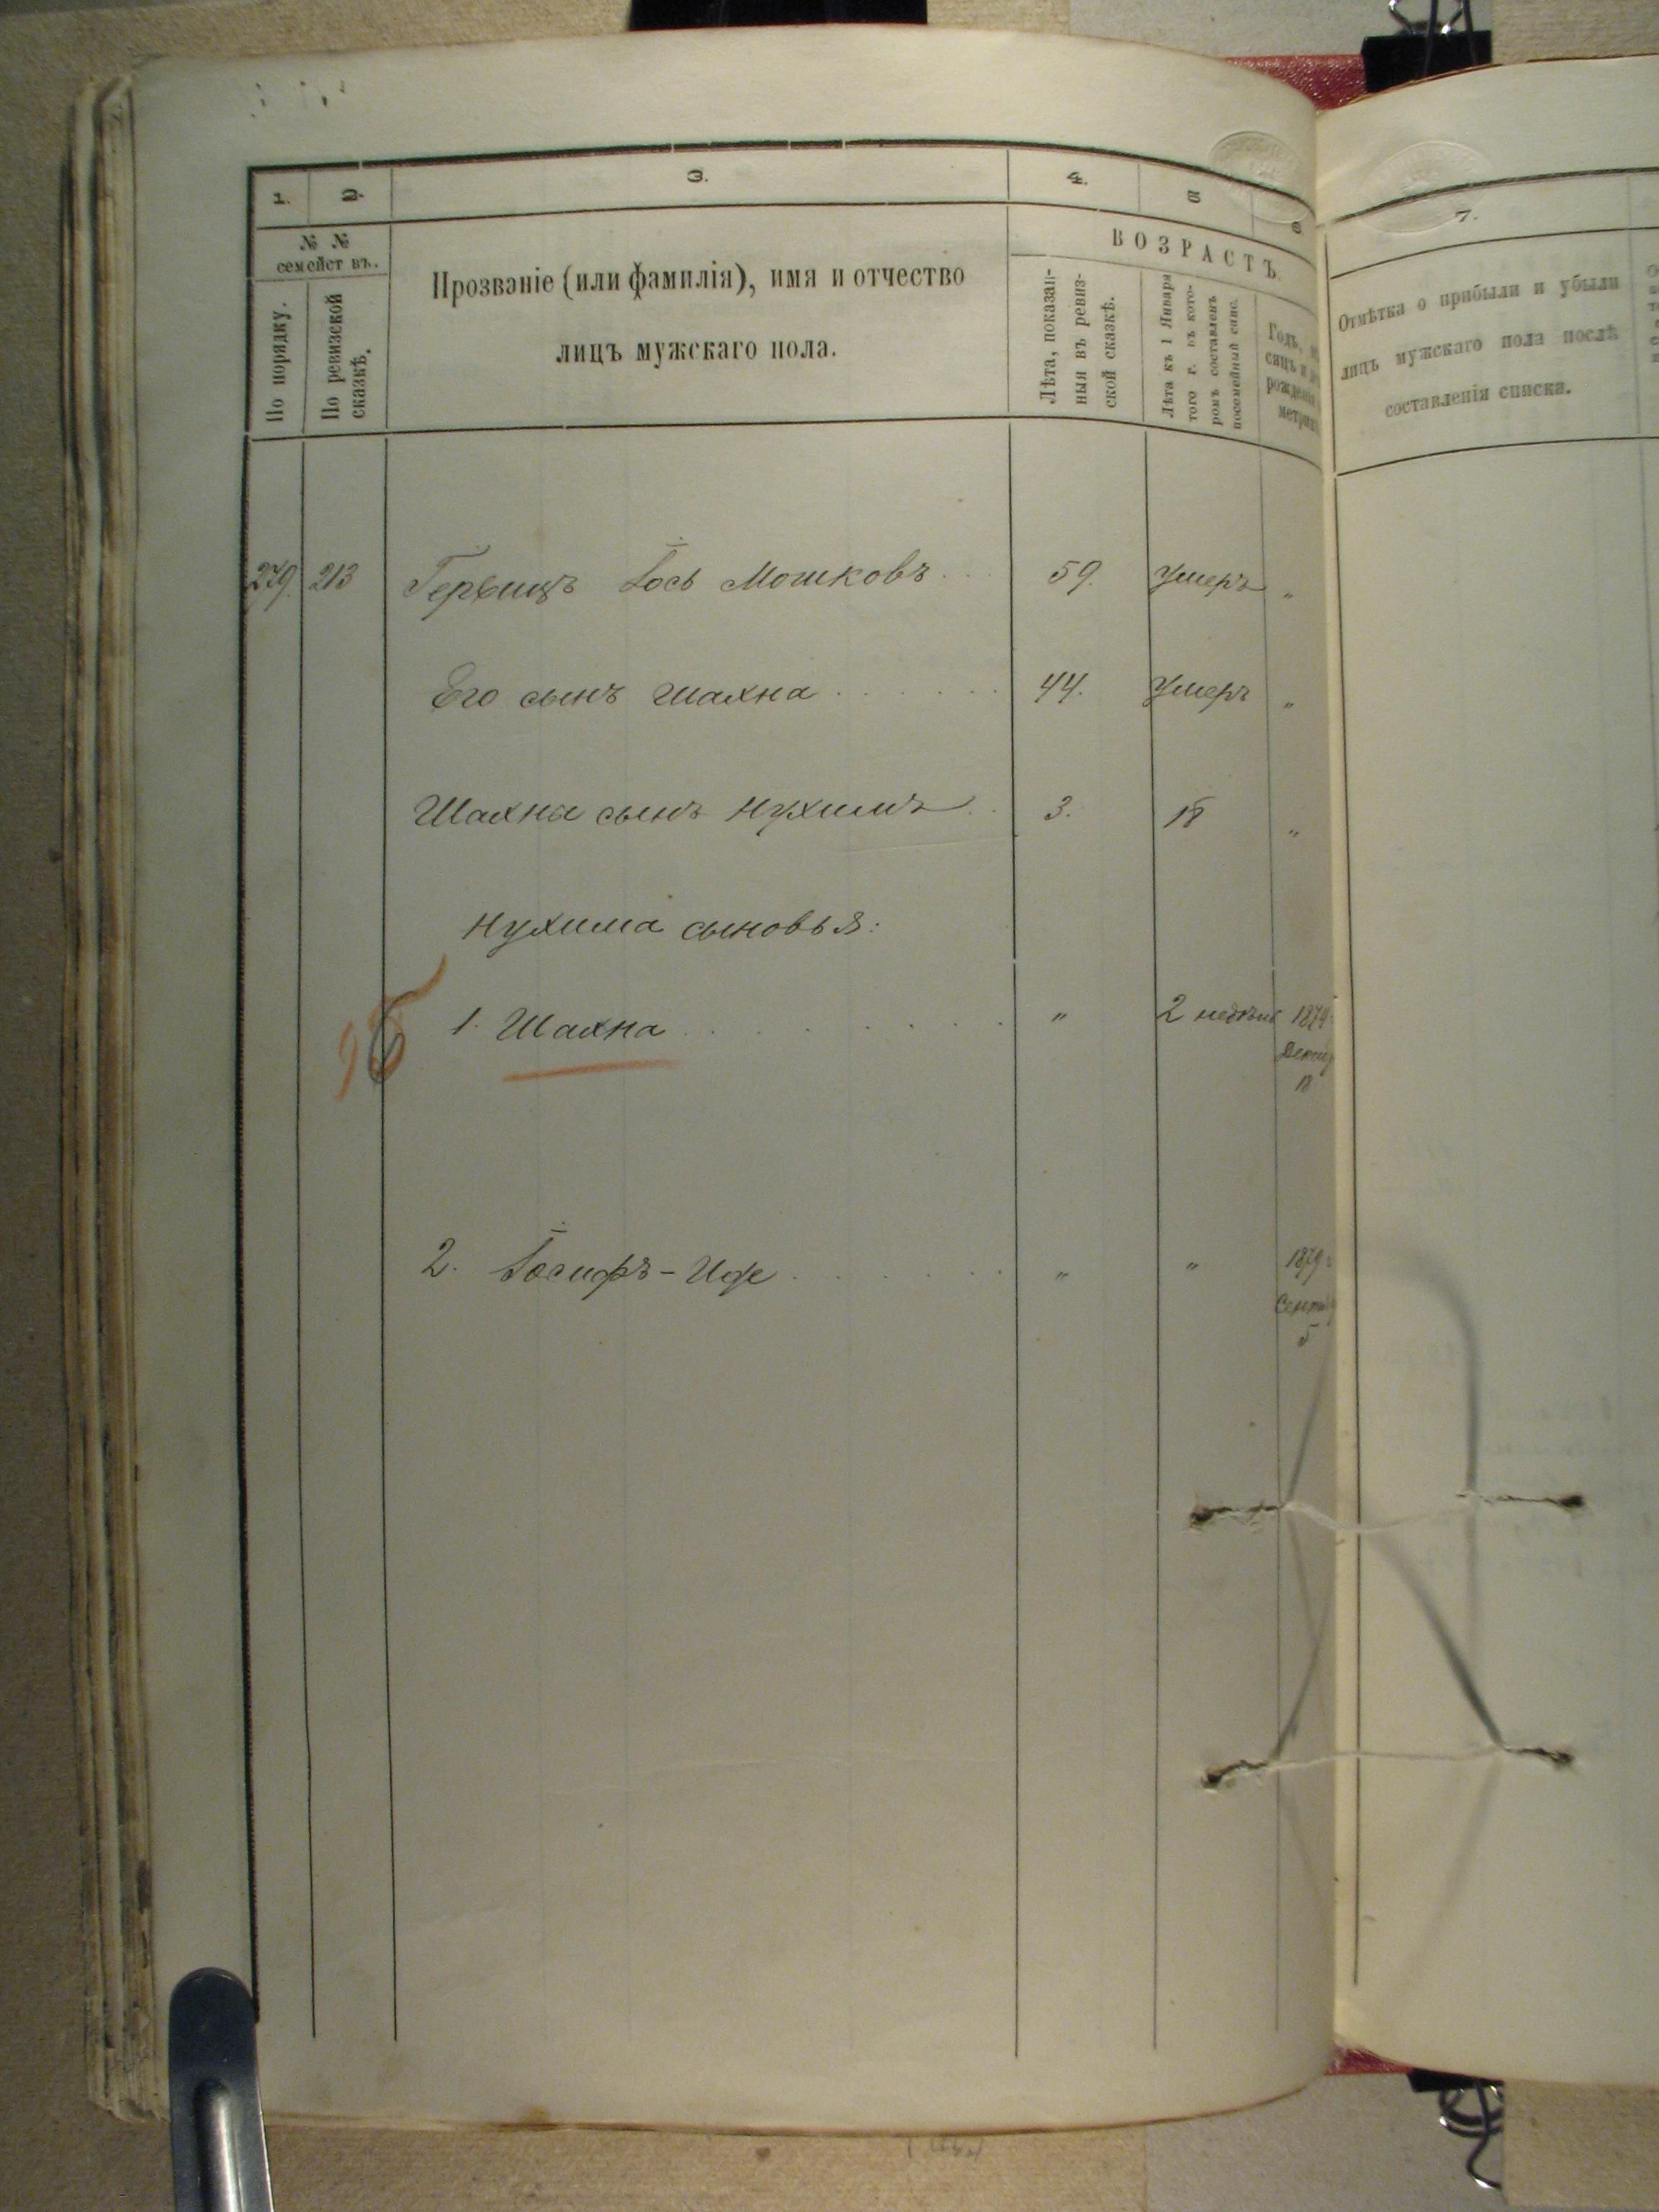 1.
2.
3.
4.
5
6
7.
№ №
семействъ.
По порядку.
По ревизской
сказкѣ.
Прозваніе (или фамилія), имя и отчество
лицъ мужскаго пола.
ВОЗРАСТЪ.
Лѣта, показан-
ныя въ ревиз-
ской сказкѣ.
Лѣта къ 1 Января
того г. въ кото-
ромъ составленъ
посемейный спис.
Годъ,
рожденія
Отмѣтка о прибыли и убыли
лицъ мужскаго пола послѣ
составленія списка.
279. 213 Гервицъ Іось Мошковъ 59. Умеръ "
Его сынъ Шахна 44. Умеръ "
Шахна сынъ Нухимъ 3. 18 "
Нухима сыновья:
1. Шахна " 2 недѣли 1874
18
2. Іосифъ-Иде " " 1879
5